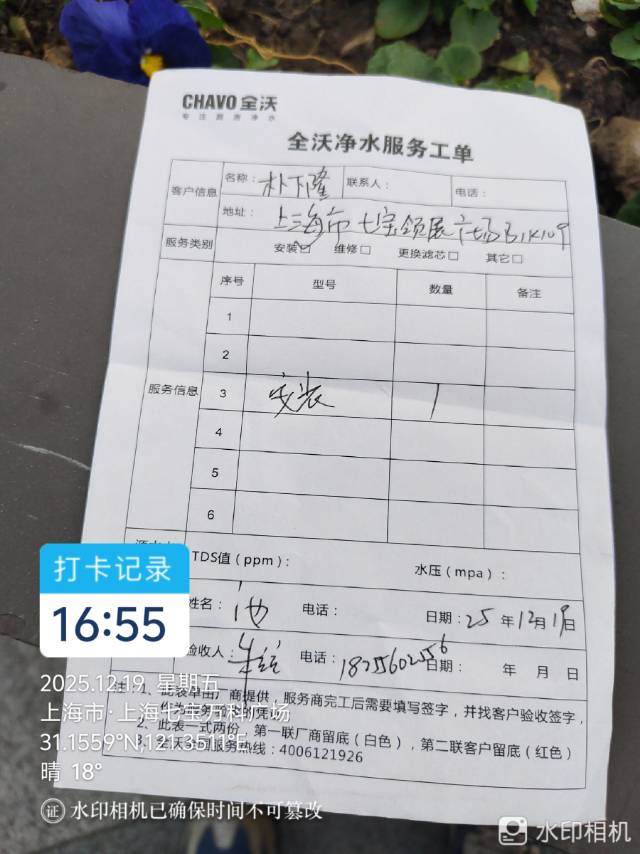 CHAVO 全沃
专注厨房净水
全沃净水服务工单
客户信息 名称: 朴下隆 联系人: 电话:
地址: 上海市七宝领展广场B1K109
服务类别 安装□ 维修□ 更换滤芯□ 其它□
服务信息 序号 型号 数量 备注
1
2
3 安装 1
4
5
6
TDS值（ppm）: 水压（mpa）:
姓名: 电话: 日期: 25 年 12 月 19 日
验收人: 电话: 1825602556 日期: 年 月 日
注: 1、此表单由厂商提供，服务商完工后需要填写签字，并找客户验收签字，
作为
2、此表一式两份，第一联厂商留底（白色），第二联客户留底（红色）
3、全沃净水服务热线: 4006121926
打卡记录
16:55
2025.12.19 星期五
上海市·上海七宝万科广场
31.1559°N,121.3511°E
晴 18°
证 水印相机已确保时间不可篡改
水印相机